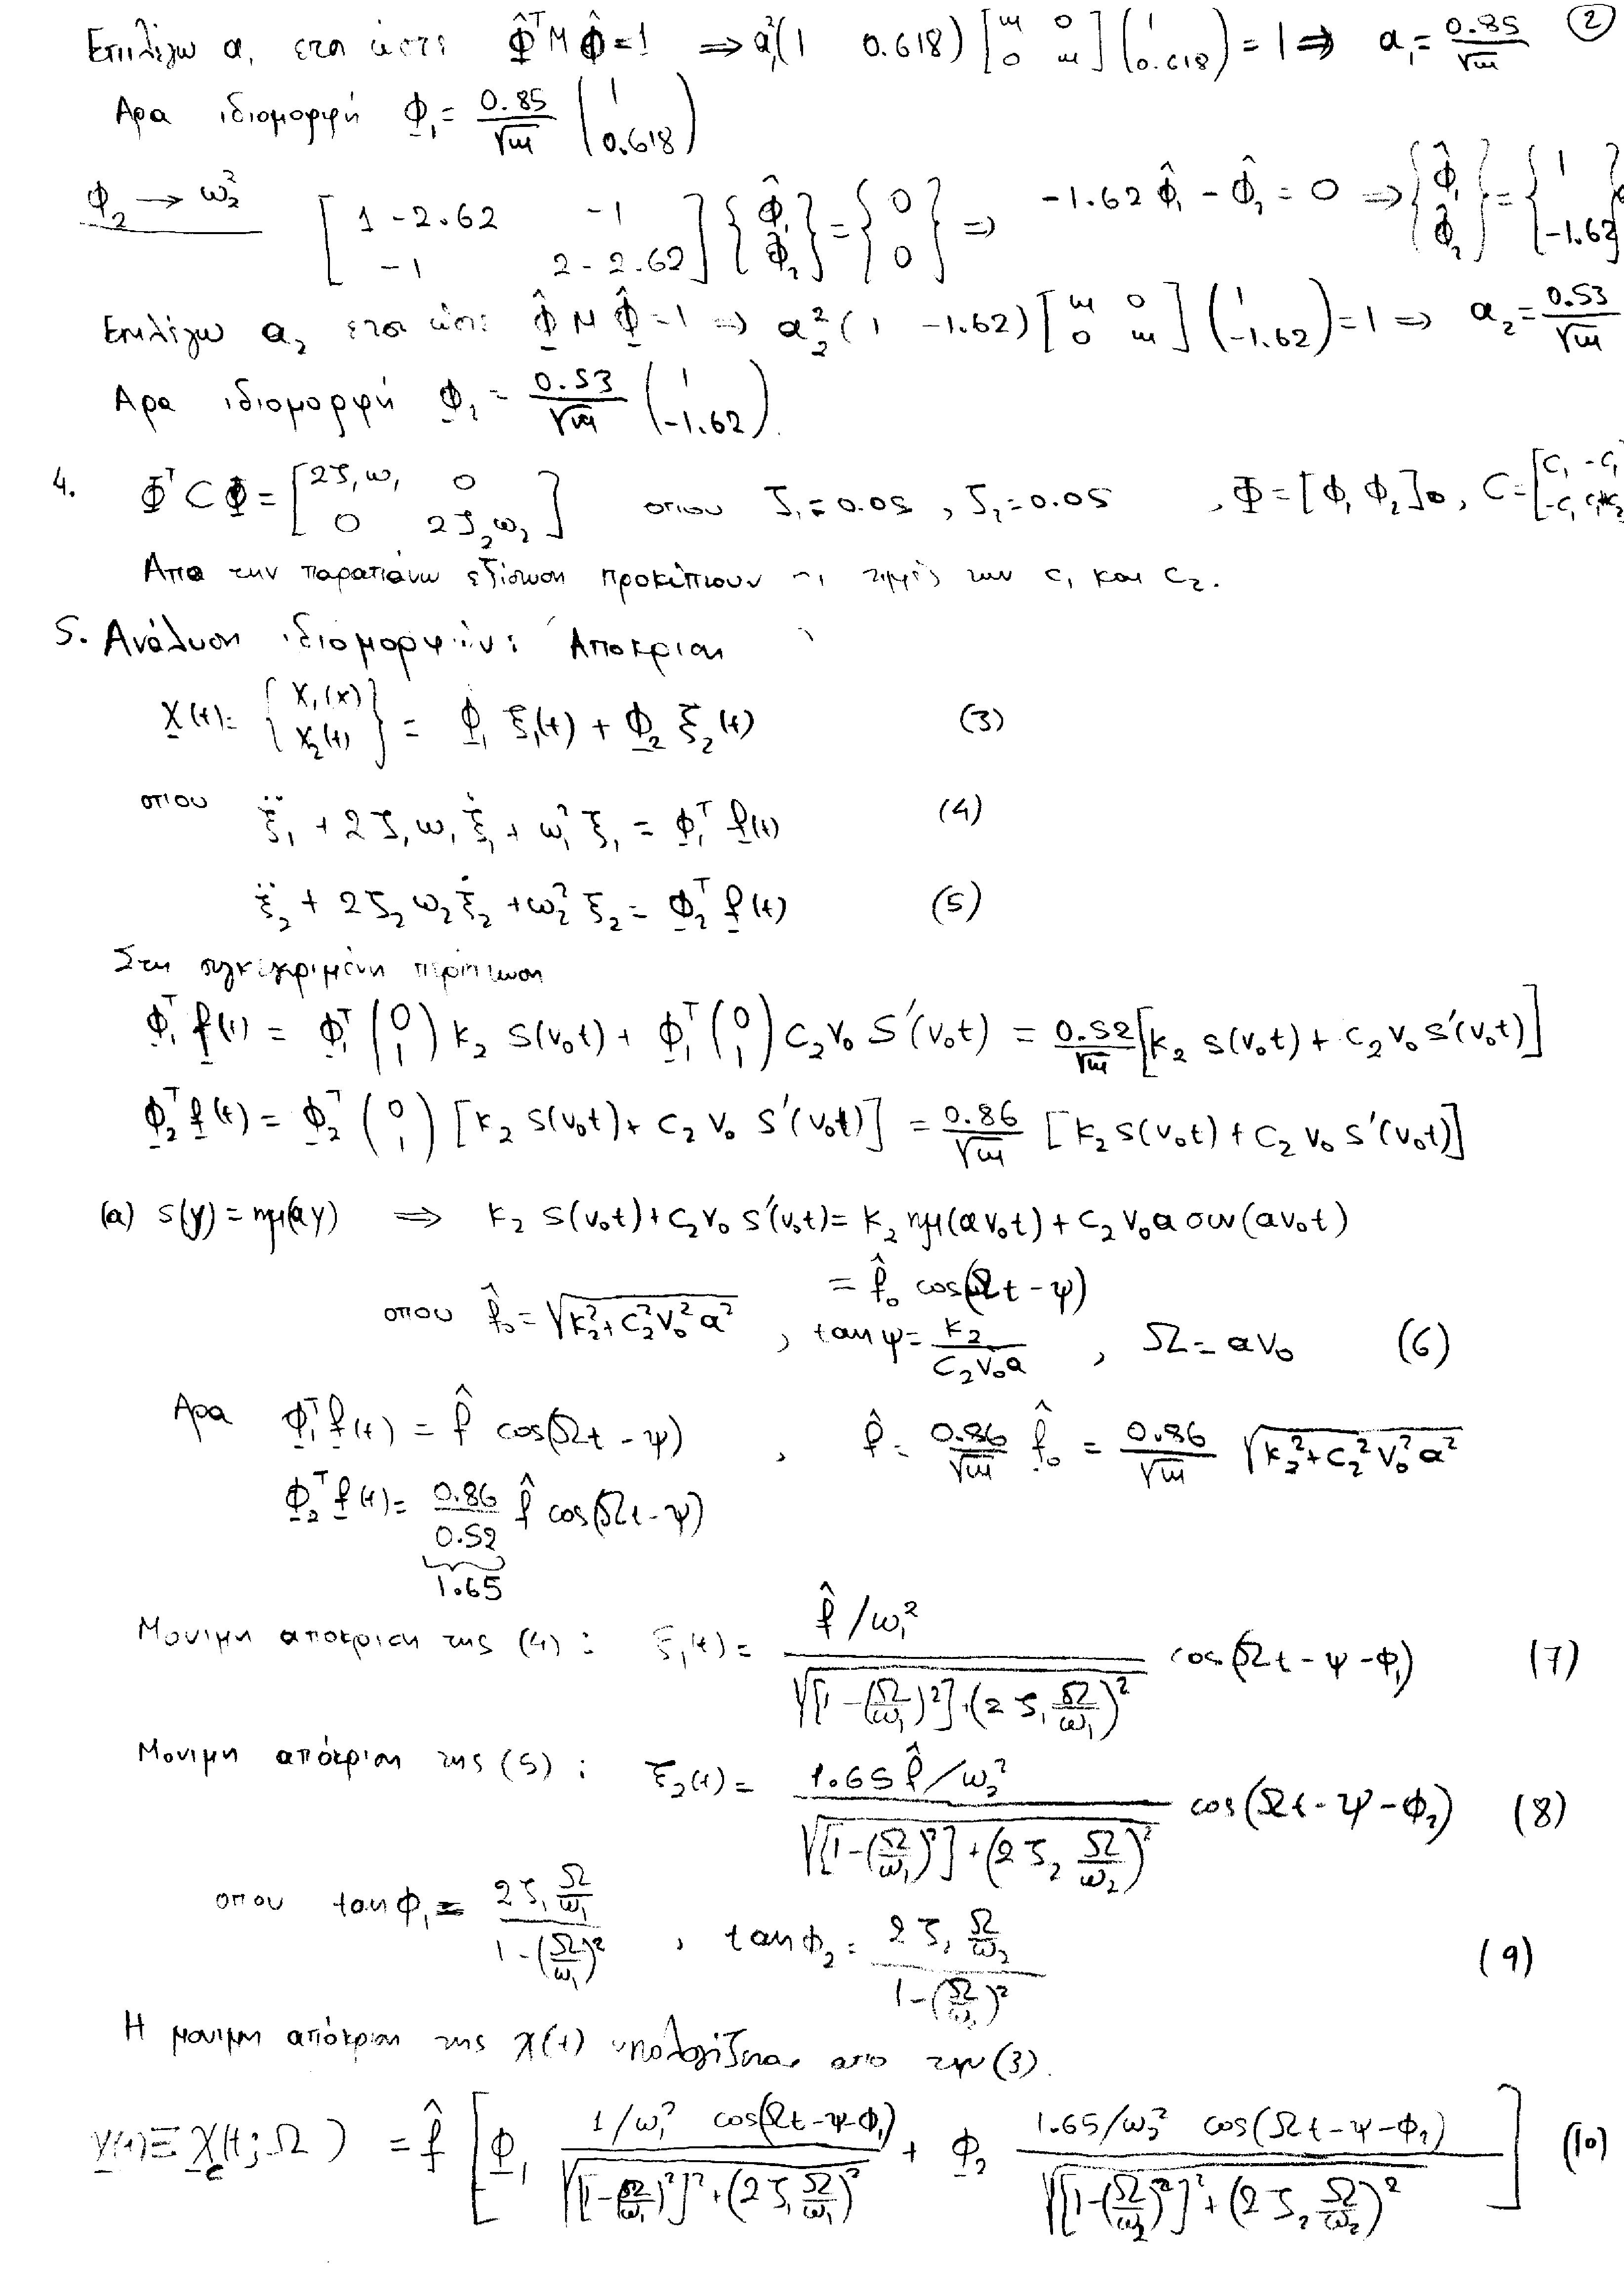 ②
Επιλέγω α₁ έτσι ώστε Φ̂ᵀ M Φ̂ = 1 ⇒ α₁²(1 0.618) [m 0; 0 m] (1; 0.618) = 1 ⇒ α₁ = 0.85/√m
Αρα ιδιομορφή Φ₁ = 0.85/√m (1; 0.618)
Φ₂ → ω₂² [1-2.62 -1; -1 2-2.62] {Φ̂₁; Φ̂₂} = {0; 0} ⇒ -1.62 Φ̂₁ - Φ̂₂ = 0 ⇒ {Φ̂₁; Φ̂₂} = {1; -1.62}
Επιλέγω α₂ έτσι ώστε Φ̂ M Φ̂ = 1 ⇒ α₂²(1 -1.62) [m 0; 0 m] (1; -1.62) = 1 ⇒ α₂ = 0.53/√m
Αρα ιδιομορφή Φ₂ = 0.53/√m (1; -1.62).
4. Φᵀ C Φ = [2ζ₁ω₁ 0; 0 2ζ₂ω₂] οπου ζ₁ = 0.05, ζ₂ = 0.05, Φ = [Φ₁ Φ₂], C = [c₁ -c₁; -c₁ c₁+c₂
Απο την παραπάνω εξίσωση προκύπτουν οι τιμές των c₁ και c₂.
5. Ανάλυση ιδιομορφών: Αποκριση
X(t) = {x₁(x); x₂(t)} = Φ₁ ξ₁(t) + Φ₂ ξ₂(t) (3)
οπου ξ̈₁ + 2ζ₁ω₁ξ̇₁ + ω₁²ξ₁ = Φ₁ᵀ f(t) (4)
ξ̈₂ + 2ζ₂ω₂ξ̇₂ + ω₂²ξ₂ = Φ₂ᵀ f(t) (5)
Στη συγκεκριμένη περίπτωση
Φ₁ᵀ f(t) = Φ₁ᵀ (0; 1) k₂ s(v₀t) + Φ₁ᵀ (0; 1) c₂v₀ s'(v₀t) = 0.52/√m [k₂ s(v₀t) + c₂v₀ s'(v₀t)]
Φ₂ᵀ f(t) = Φ₂ᵀ (0; 1) [k₂ s(v₀t) + c₂ v₀ s'(v₀t)] = 0.86/√m [k₂ s(v₀t) + c₂ v₀ s'(v₀t)]
(a) s(y) = ημ(ay) ⇒ k₂ s(v₀t) + c₂v₀ s'(v₀t) = k₂ ημ(av₀t) + c₂v₀a συν(av₀t)
= f̂₀ cos(Ωt - ψ)
οπου f̂₀ = √(k₂² + c₂²v₀²a²), tanψ = k₂/(c₂v₀a), Ω = av₀ (6)
Αρα Φ₁ᵀ f(t) = f̂ cos(Ωt - ψ), f̂ = 0.86/√m f̂₀ = 0.86/√m √(k₂² + c₂²v₀²a²)
Φ₂ᵀ f(t) = 0.86/0.52 f̂ cos(Ωt - ψ)
1.65
Μονιμη αποκριση της (4): ξ₁(t) = (f̂/ω₁²)/√([1-(Ω/ω₁)²]+(2ζ₁Ω/ω₁)²) cos(Ωt - ψ - Φ₁) (7)
Μονιμη απόκριση της (5): ξ₂(t) = (1.65f̂/ω₂²)/√([1-(Ω/ω₁)²]+(2ζ₂Ω/ω₂)²) cos(Ωt - ψ - Φ₂) (8)
οπου tanΦ₁ = (2ζ₁Ω/ω₁)/(1-(Ω/ω₁)²), tanΦ₂ = (2ζ₁Ω/ω₂)/(1-(Ω/ω₂)²) (9)
Η μονιμη απόκριση της X(t) υπολογίζεται απο την (3).
y(t) ≡ X_c(t; Ω) = f̂ [Φ₁ (1/ω₁² cos(Ωt-ψ-Φ₁))/√([1-(Ω/ω₁)²]²+(2ζ₁Ω/ω₁)²) + Φ₂ (1.65/ω₂² cos(Ωt-ψ-Φ₂))/√([1-(Ω/ω₂)²]²+(2ζ₂Ω/ω₂)²)] (10)